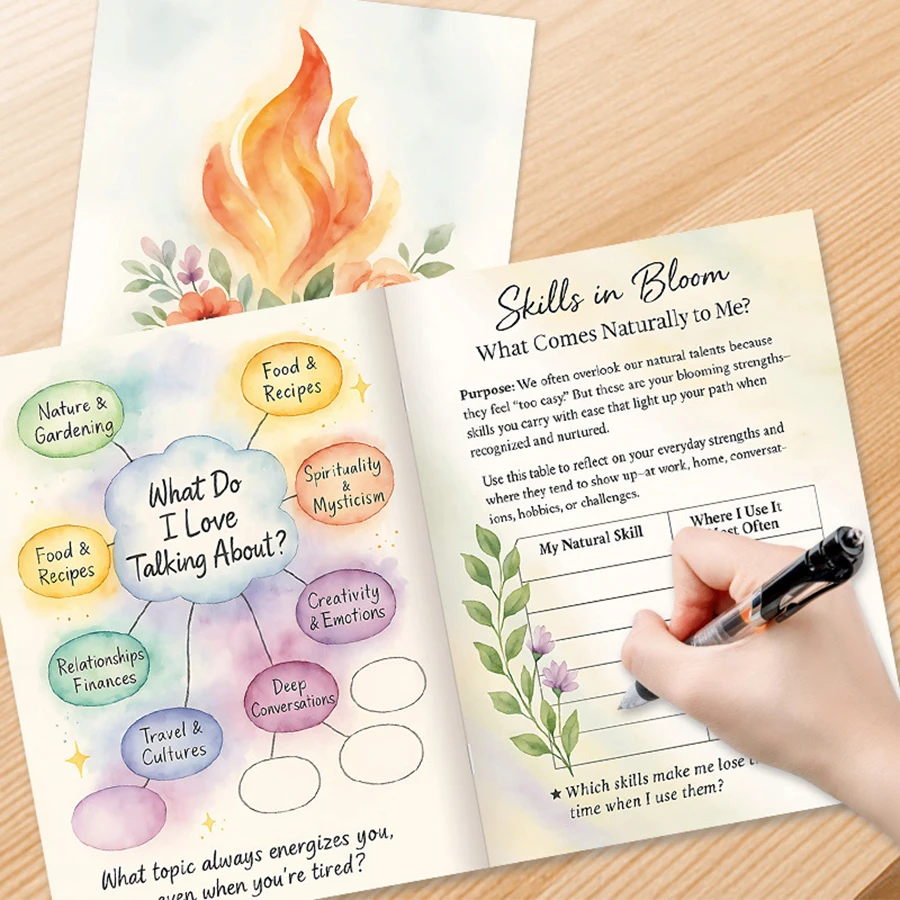 Nature &
Gardening
Food &
Recipes
What Do
I Love
Talking About?
Spirituality
&
Mysticism
Food &
Recipes
Creativity
& Emotions
Relationships
Finances
Deep
Conversations
Travel &
Cultures
What topic always energizes you,
even when you're tired?
Skills in Bloom
What Comes Naturally to Me?
Purpose: We often overlook our natural talents because
they feel "too easy." But these are your blooming strengths–
skills you carry with ease that light up your path when
recognized and nurtured.
Use this table to reflect on your everyday strengths and
where they tend to show up–at work, home, conversat-
ions, hobbies, or challenges.
My Natural Skill
Where I Use It
Most Often
★ Which skills make me lose
time when I use them?